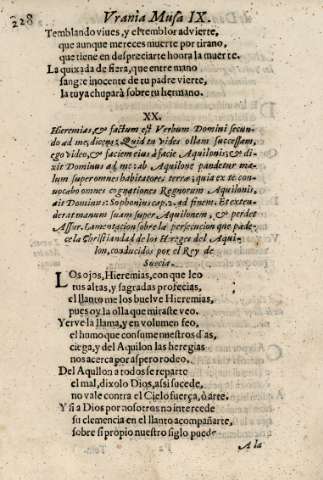 228
Vrania Musa IX.
Temblando viues, y el temblor advierte,
que aunque mereces muerte por tirano,
que tiene en despreciarte honra la muerte.
La quixada de fiera, que entre mano
sangre inocente de tu padre vierte,
la tuya chupará sobre tu hermano.
XX.
Hieremias, & factum est Verbum Domini secun-
do ad me, dicens; Quid tu vides ollam succensam,
ego video, & faciem eius à facie Aquilonis; & di-
xit Dominus ad me: ab Aquilone pandetur ma-
lum super omnes habitatores terræ; quia ex te con-
vocabo omnes cognationes Regnorum Aquilonis,
ait Dominus: Sophonius cap. 2. ad finem. Et exten-
derat manum suam super Aquilonem, & perdet
Assur. Lamentacion sobre la persecucion que pade-
ce la Christiandad de los Hereges del Aqui-
lon, conducidos por el Rey de
Suecia.
LOs ojos, Hieremias, con que leo
tus altas, y sagradas profecias,
el llanto me los buelve Hieremias,
pues oy, la olla que miraste veo.
Yerve la llama, y en volumen feo,
el humo que consume nuestros dias,
ciega, y del Aquilon las heregias
nos acerca por aspero rodeo.
Del Aquilon a todos se reparte
el mal, dixolo Dios, assi sucede,
no vale contra el Cielo fuerça, ò arte.
Y si a Dios por nosotros no intercede
su clemencia en el llanto acompañarte,
sobre si propio nuestro siglo puede
A la